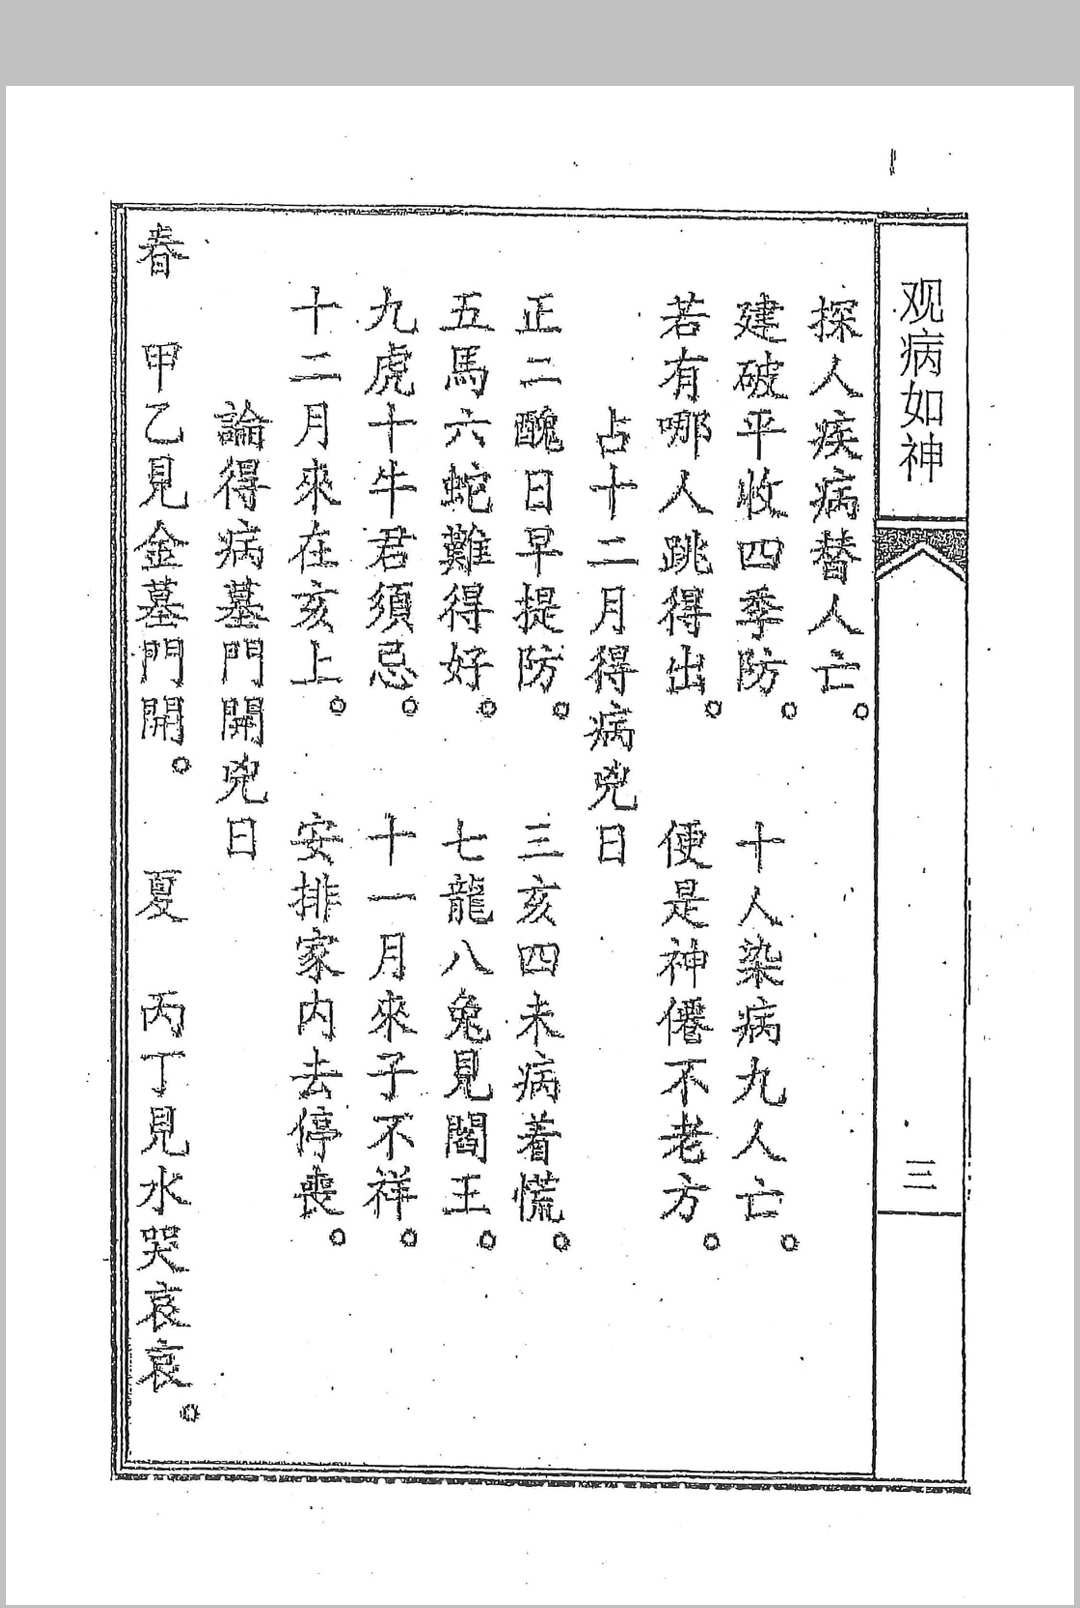 观病如神
三
探人疾病替人亡。
建破平收四季防。 十人染病九人亡。
若有哪人跳得出。 便是神僊不老方。
占十二月得病兇日
正二醜日早提防。 三亥四未病着慌。
五馬六蛇難得好。 七龍八兔見閻王。
九虎十牛君須忌。 十一月來子不祥。
十二月來在亥上。 安排家内去停喪。
論得病墓門開兇日
春 甲乙見金墓門開。 夏 丙丁見水哭哀哀。